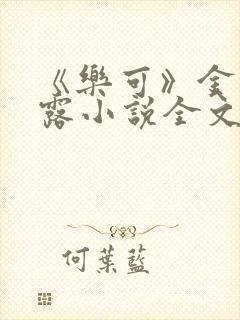 《樂可》金
露小說全文
何葉藍